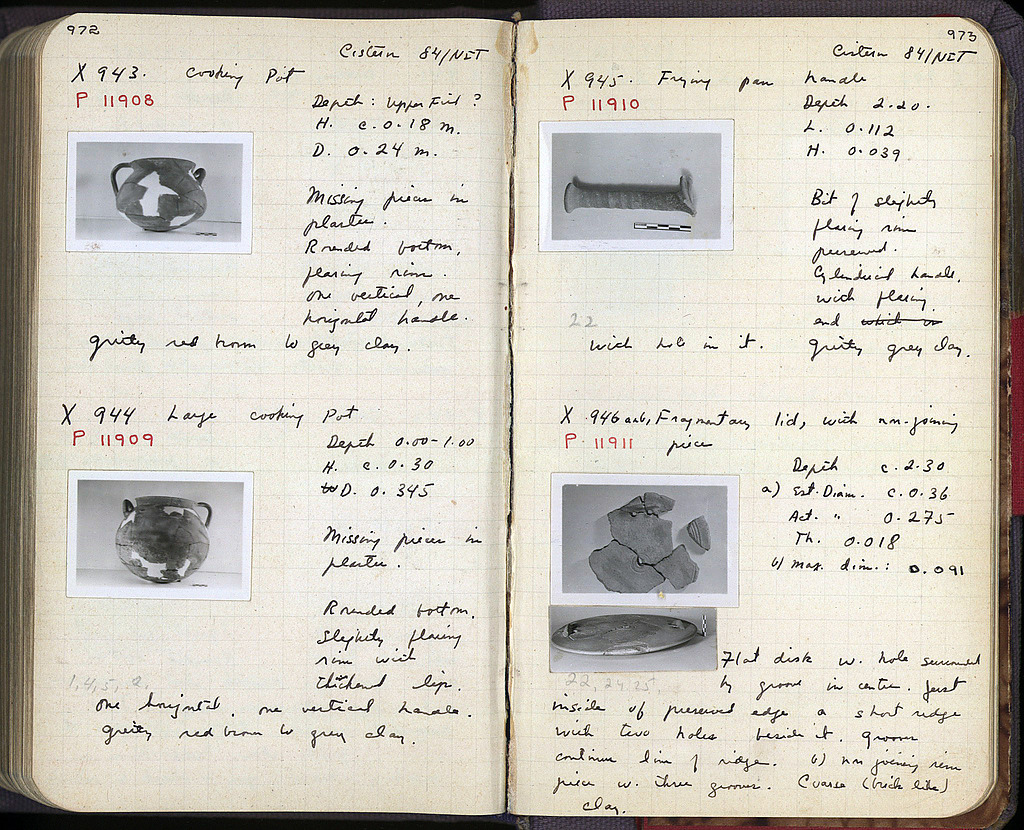 972
Cistern 84/NET
X 943. Cooking Pot
P 11908
Depth: Upper Fill ?
H. c. 0.18 m.
D. 0.24 m.
Missing pieces in
plaster.
Rounded bottom,
flaring rim.
One vertical, one
horizontal handle.
gritty red brown to grey clay.
X 944 Large cooking Pot
P 11909
Depth 0.00-1.00
H. c. 0.30
D. 0.345
Missing pieces in
plaster.
Rounded bottom.
Slightly flaring
rim with
thickened lip.
1, 4, 5,
one horizontal, one vertical handle.
gritty red brown to grey clay.
973
Cistern 84/NET
X 945. Frying pan handle
P 11910
Depth 2.20.
L. 0.112
H. 0.039
Bit of slightly
flaring rim
preserved.
Cylindrical handle,
with flaring
end which is
22
with hole in it. gritty grey clay.
X 946 a+b, Fragmentary lid, with non-joining
P 11911 piece
Depth c. 2.30
a) Est. Diam. c. 0.36
Act. " 0.275
Th. 0.018
b) max. dim.: 0.091
Flat disk w. hole surrounded
22, 24, 25,
by groove in centre. Just
inside of preserved edge a short ridge
with two holes beside it. grooves
continue line of ridge. b) non joining rim
piece w. three grooves. Coarse (brick like)
clay.